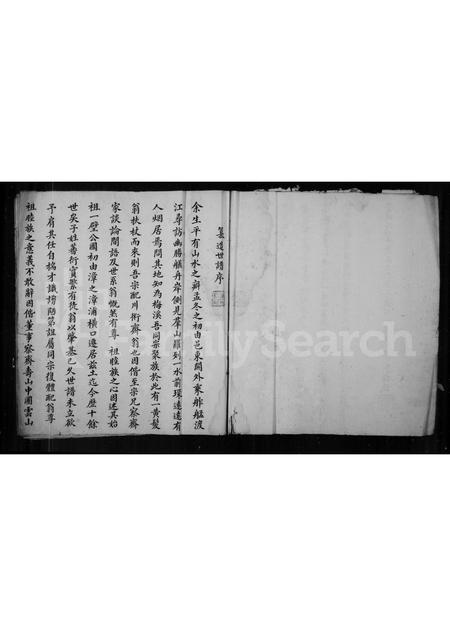 纂造世譜序
余生平有山水之癖孟冬之初由邑東關外乘舴艋渡
江尋訪幽勝艤舟岸側見羣山羅列一水前環遠遠有
人烟居焉問其地知為梅溪吾同宗聚族於此有一黃髮
翁扶杖而來則吾宗配川術齋翁也因偕至宗兄察齋
家談論間語及世系翁慨然有尊 祖睦族之心因述其始
祖一壁公園初由漳之漳浦橫口遷居茲土迄今歷十餘
世矣子姓蕃衍實繁有徒翁以肇基已久世譜未立欲
予肩其任自揣才識媕陋第誼屬同宗復體配翁尊
祖睦族之意義不敢辭因偕董事察齋壽山中圃雲山
FamilySearch